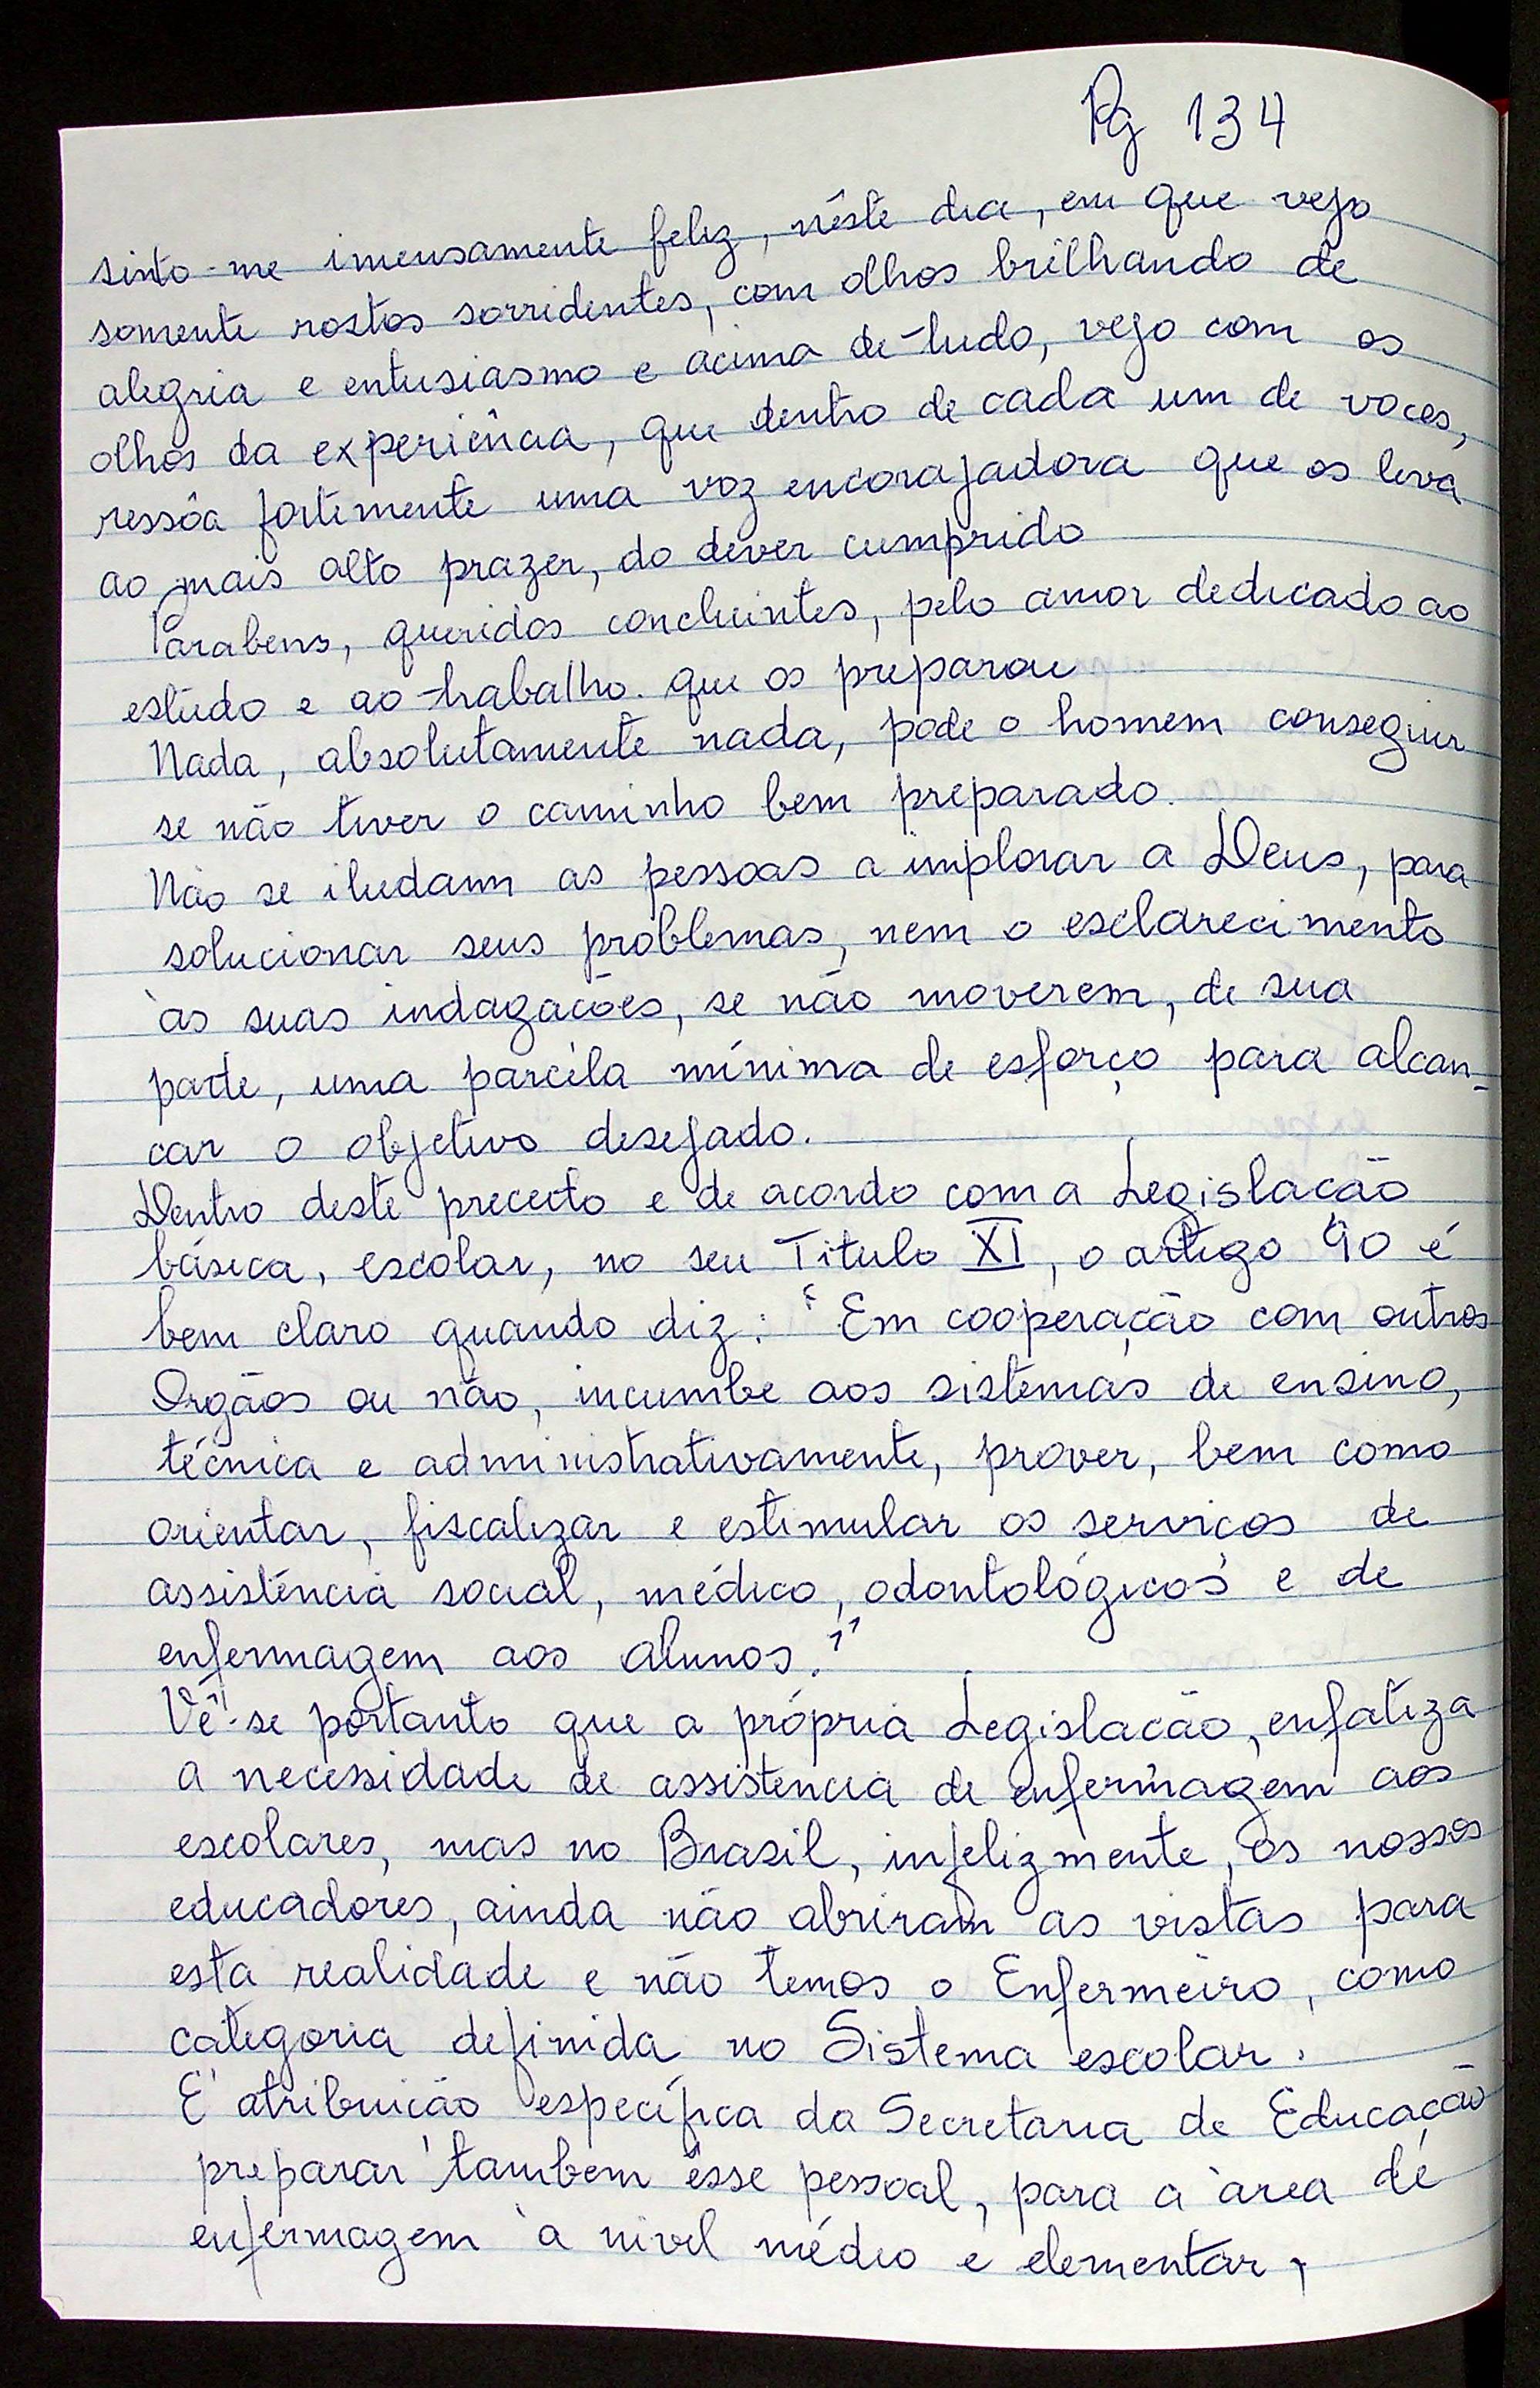 Pg 134
sinto-me imensamente feliz, nêste dia, em que vejo
somente rostos sorridentes, com olhos brilhando de
alegria e entusiasmo e acima de tudo, vejo com os
olhos da experiência, que dentro de cada um de voces,
ressôa fortemente uma voz encorajadora que os leva
ao mais alto prazer, do dever cumprido
Parabens, queridos concluintes, pelo amor dedicado ao
estudo e ao trabalho. que os preparou
Nada, absolutamente nada, pode o homem conseguir
se não tiver o caminho bem preparado.
Não se iludam as pessoas a implorar a Deus, para
solucionar seus problemas, nem o esclarecimento
às suas indagacões, se não moverem, de sua
parte, uma parcéla mínima de esforço para alcan-
car o objetivo desejado.
Dentro deste preceito e de acordo com a Legislacão
básica, escolar, no seu Titulo XI, o artigo 90 é
bem claro quando diz: "Em cooperação com outros
Orgãos ou não, incumbe aos sistemas de ensino,
técnica e administrativamente, prover, bem como
orientar, fiscalizar e estimular os servicos de
assistência social, médico, odontológicos e de
enfermagem aos alunos."
Vê-se portanto que a própria Legislacão, enfatiza
a necessidade de assistencia de enfermagem aos
escolares, mas no Brasil, infelizmente, os nossos
educadores, ainda não abriram as vistas para
esta realidade e não temos o Enfermeiro, como
categoria definida no Sistema escolar.
É atribuicão específica da Secretaria de Educação
preparar tambem êsse pessoal, para a àrea de
enfermagem à nivel médio e elementar,